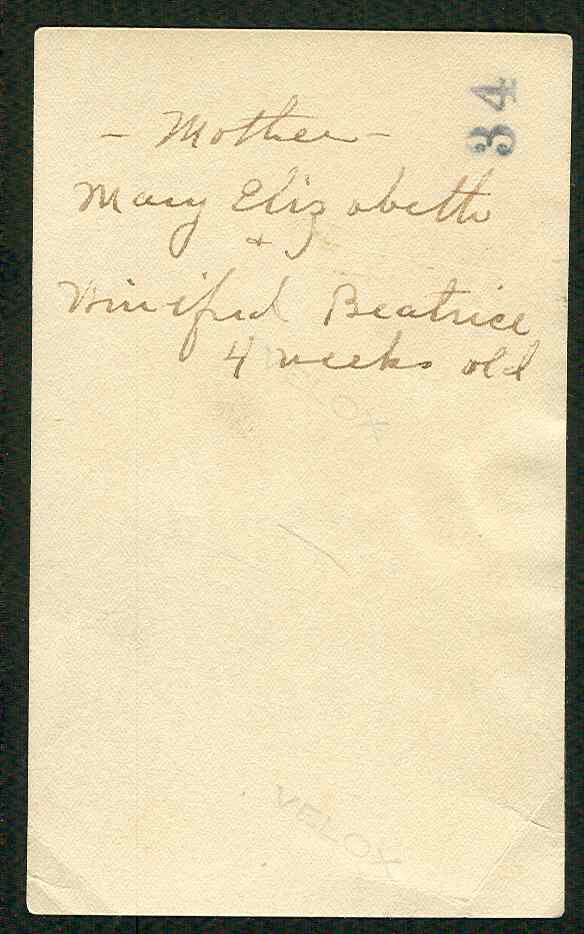 34
- Mother -
Mary Elizabeth
+
Winifred Beatrice
4 weeks old
VELOX
VELOX